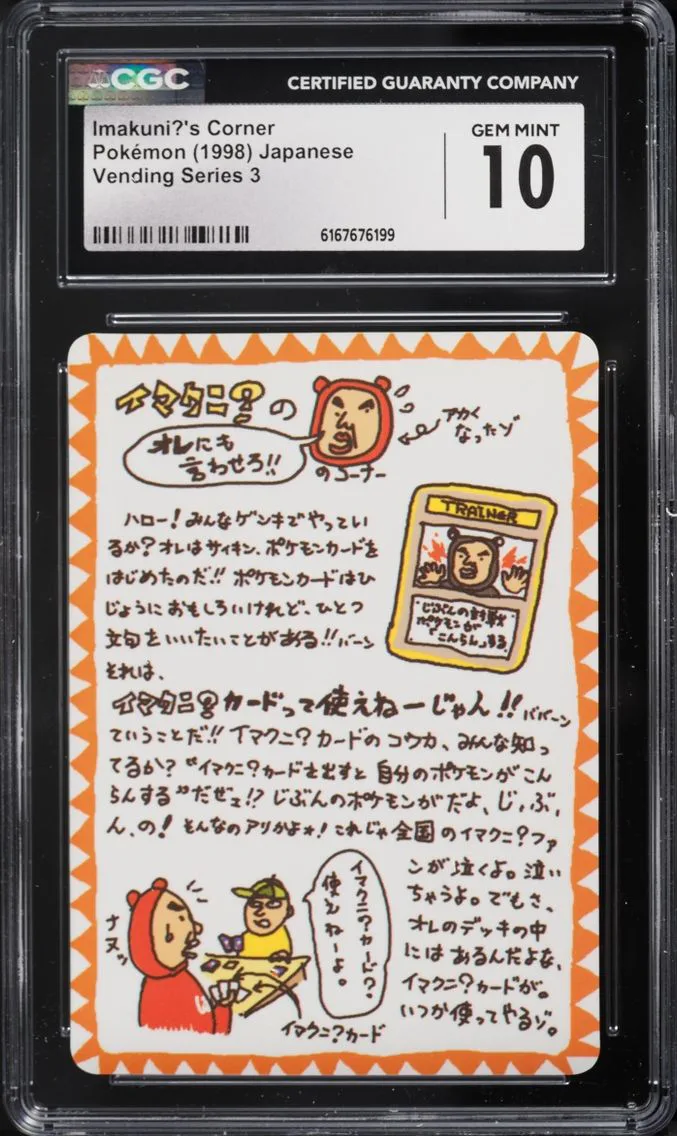 CGC
CERTIFIED GUARANTY COMPANY
Imakuni?'s Corner
Pokémon (1998) Japanese
Vending Series 3
GEM MINT
10
6167676199
イマクニ?の
オレにも
言わせろ!!
のコーナー
アカく
なったゾ
ハロー!みんなゲンキでやってい
るか?オレはサイキン、ポケモンカードを
はじめたのだ!!ポケモンカードはひ
じょうにおもしろいけれど、ひとつ
文句をいいたいことがある!!バーン
それは、
TRAINER
じぶんの対戦
ポケモンが
「こんらん」する
イマクニ?カードって使えねーじゃん!!ババーン
ていうことだ!!イマクニ?カードのコウカ、みんな知っ
てるか?“イマクニ?カードを出すと自分のポケモンがこん
らんする”だぜェ!?じぶんのポケモンがだよ、じ,ぶ,
ん、の!そんなのアリかよ☆!これじゃ全国のイマクニ?ファ
ンが泣くよ。泣い
ちゃうよ。でもさ、
オレのデッキの中
にはあるんだよな、
イマクニ?カードが。
いつか使ってやるゾ。
ナヌッ
イマクニ?カード?
使えねーよ。
イマクニ?カード